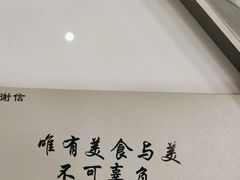 谢信
唯有美食与美
不可辜负